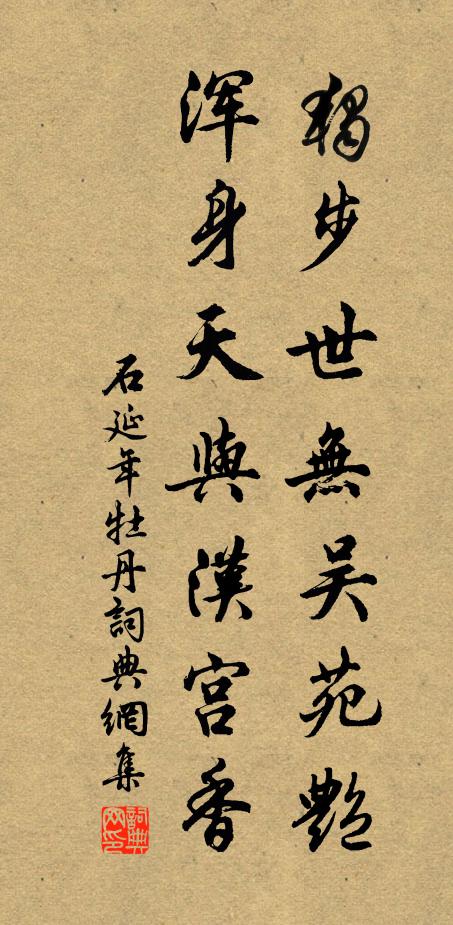 獨步世無吴苑艷
渾身天與漢宮香
石延年牡丹詞典網集
詞典网印